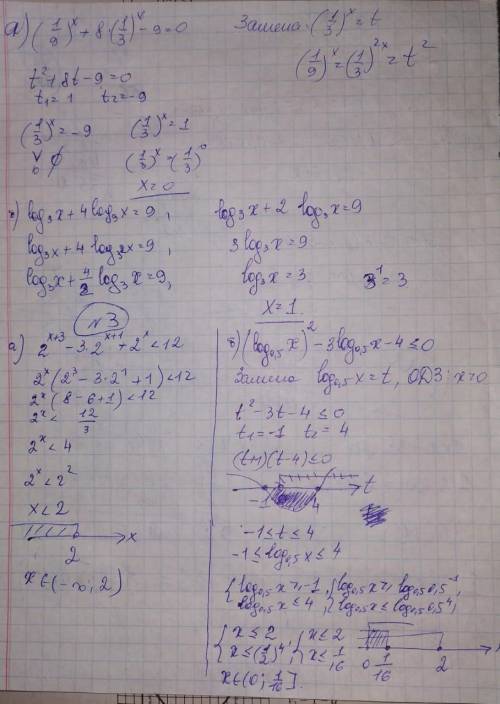 а) (1/9)^x + 8·(1/3)^x - 9 = 0
Замена (1/3)^x = t
(1/9)^x = (1/3)^2x = t^2
t^2 + 8t - 9 = 0
t₁ = 1 t₂ = -9
(1/3)^x = -9 (1/3)^x = 1
∅ (1/3)^x = (1/3)^0
x = 0
log₃x + 4 log₉x = 9,
log₃x + 4 log₃²x = 9,
log₃x + 4/2 log₃x = 9,
log₃x + 2 log₃x = 9
3 log₃x = 9
log₃x = 3. 3^1 = 3
x = 1.
N3
а) 2^x+3 - 3·2^x+1 + 2^x < 12
2^x(2^3 - 3·2^1 + 1) < 12
2^x(8 - 6 + 1) < 12
2^x < 12/3
2^x < 4
2^x < 2^2
x < 2
2 x
x ∈ (-∞; 2)
б) (log₀,₅x)^2 - 3log₀,₅x - 4 ≤ 0
Замена log₀,₅x = t, ОДЗ: x>0
t^2 - 3t - 4 ≤ 0
t₁ = -1 t₂ = 4
(t+1)(t-4) ≤ 0
-1 4 t
-1 ≤ t ≤ 4
-1 ≤ log₀,₅x ≤ 4
{ log₀,₅x ≥ -1, { log₀,₅x ≥ log₀,₅0,5^-1,
log₀,₅x ≤ 4 ; log₀,₅x ≤ log₀,₅0,5^4;
{ x ≤ 2 { x ≤ 2
x ≤ (1/2)^4; x ≤ 1/16
0 1/16 2
x ∈ (0; 1/16].